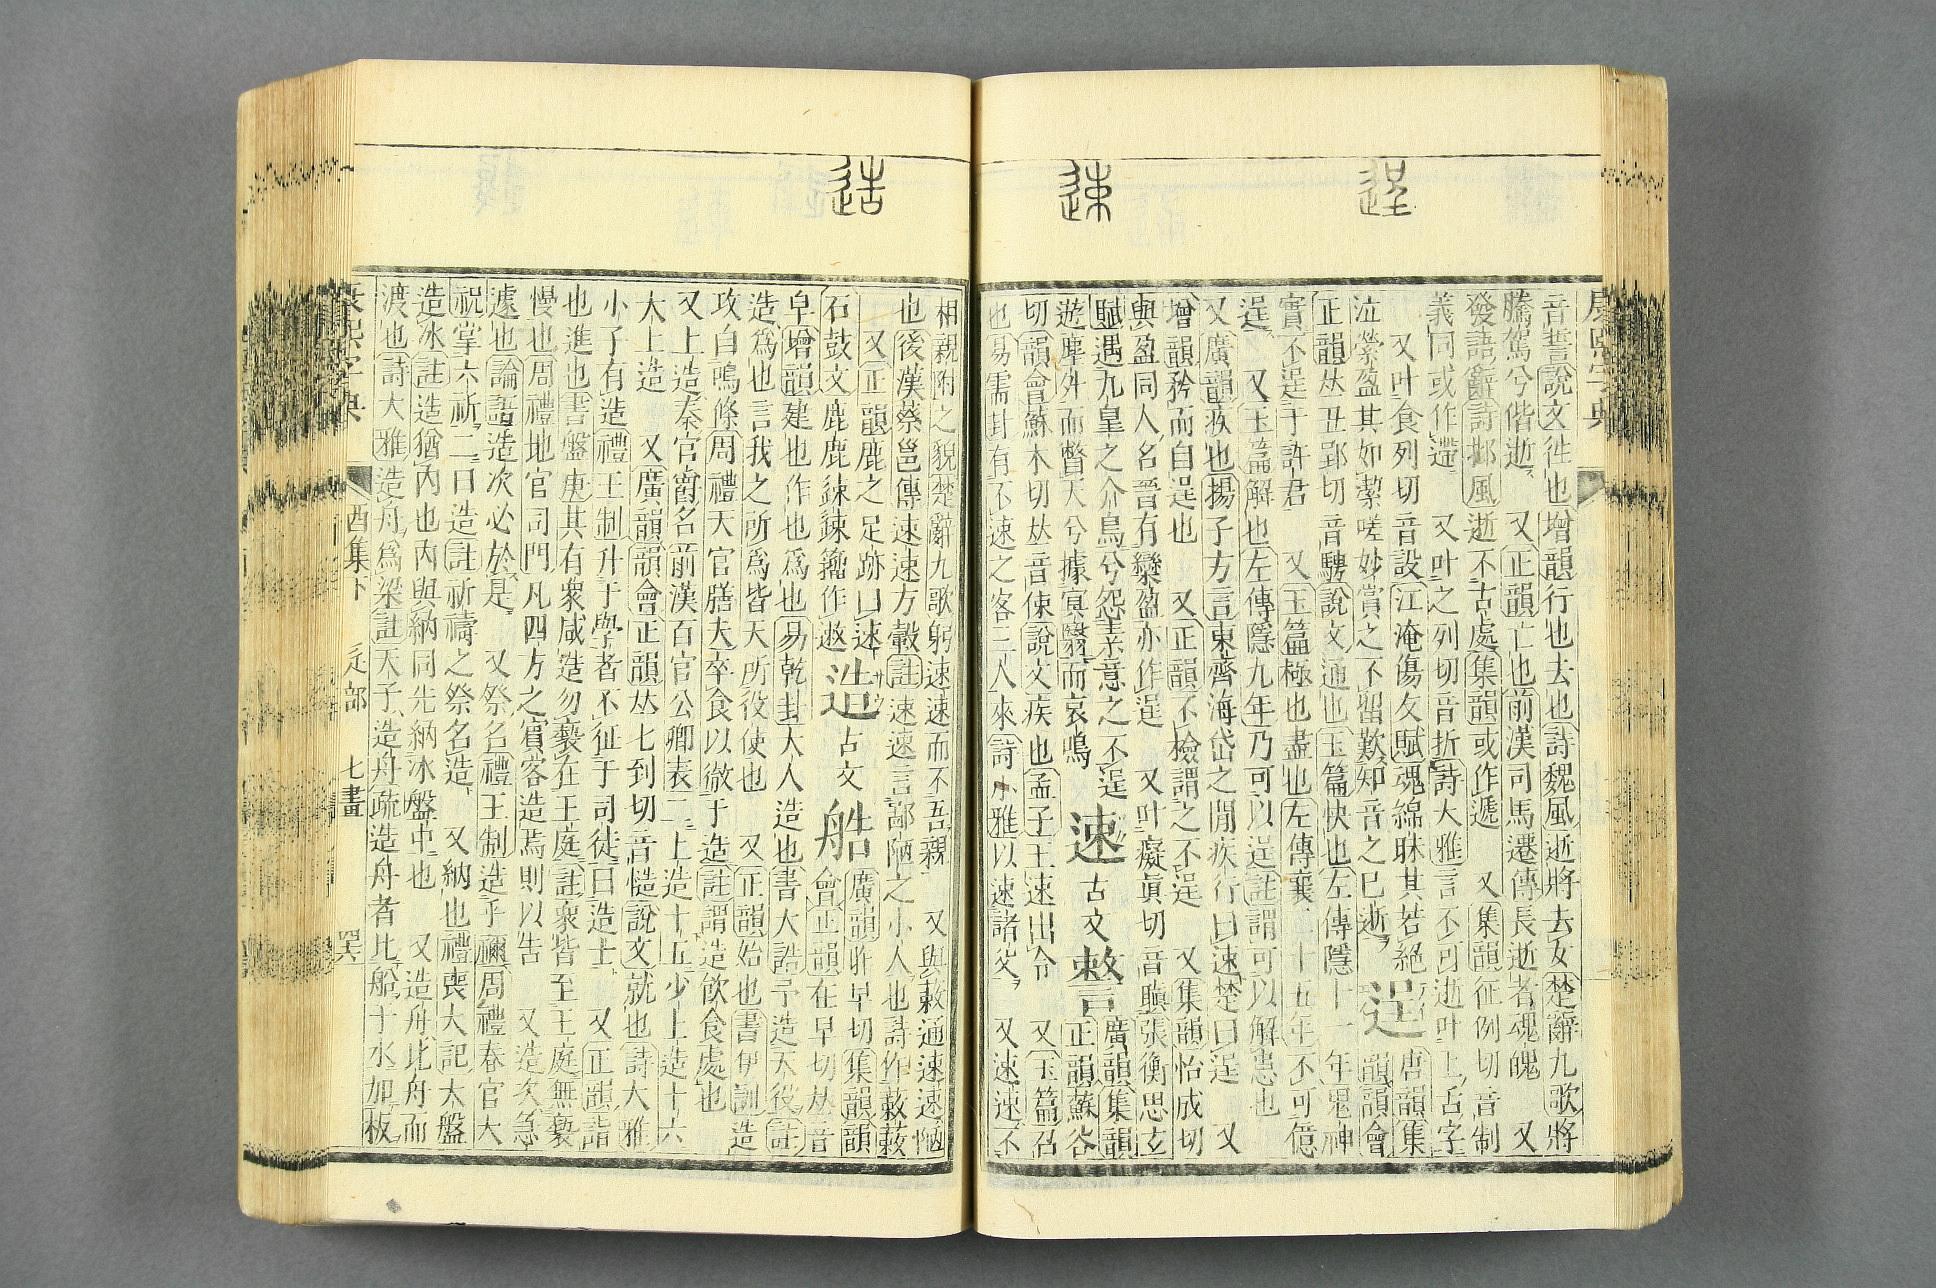 逞
速
造
康熙字典
音誓說文徃也增韻行也去也詩魏風逝將去女楚辭九歌將
騰駕兮偕逝又正韻亡也前漢司馬遷傳長逝者魂魄又
發語辭詩邶風逝不古處集韻或作遞又集韻征例切音制
義同或作遰又叶之列切音折詩大雅言不可逝叶上舌字
又叶食列切音設江淹傷友賦魂綿昧其若絕
泣縈盈其如潔嗟妙賞之不留歎知音之已逝逞唐韻集韻韻會
正韻丛丑郢切音騁說文通也玉篇快也左傳隱十一年鬼神
實不逞于許君又玉篇極也盡也左傳襄二十五年不可億
逞又玉篇解也左傳隱九年乃可以逞註謂可以解患也
又廣韻疾也揚子方言東齊海岱之閒疾行曰速楚曰逞又
增韻矜而自逞也又正韻不檢謂之不逞又集韻怡成切
與盈同人名晉有欒盈亦作逞又叶癡眞切音瞋張衡思玄
賦遇九皇之介鳥兮怨素意之不逞
遊塵外而瞥天兮據冥翳而哀鳴速古文警廣韻集韻正韻蘇谷
切韻會蘇木切丛音倲說文疾也孟子王速出令又玉篇召
也易需卦有不速之客三人來詩小雅以速諸父又速速不
相親附之貌楚辭九歌躬速速而不吾親又與遬通速速陋
也後漢蔡邕傳速速方轂註速速言鄙陋之小人也詩作蔌蔌
又正韻鹿之足跡曰速
石鼓文鹿鹿速速籀作遬造古文艁廣韻昨早切集韻韻會正韻在早切丛音
皁增韻建也作也爲也易乾卦大人造也書大誥予造天役註
造爲也言我之所爲皆天所役使也又正韻始也書伊訓造
攻自鳴條周禮天官膳夫卒食以徹于造註謂造飮食處也
又上造秦官爵名前漢百官公卿表二上造十五少上造十六
大上造又廣韻韻會正韻丛七到切音慥說文就也詩大雅
小子有造禮王制升于學者不征于司徒曰造士又正韻詣
也進也書盤庚其有衆咸造勿褻在王庭註衆皆至王庭無褻
慢也周禮地官司門凡四方之賓客造焉則以告又造次急
遽也論語造次必於是又祭名禮王制造乎禰周禮春官大
祝掌六祈二曰造註祈禱之祭名造又納也禮喪大記大盤
造冰註造猶內也內與納同先納冰盤中也又造舟比舟而
渡也詩大雅造舟爲梁註天子造舟疏造舟者比船于水加板
康熙字典 酉集下 辵部 七畫